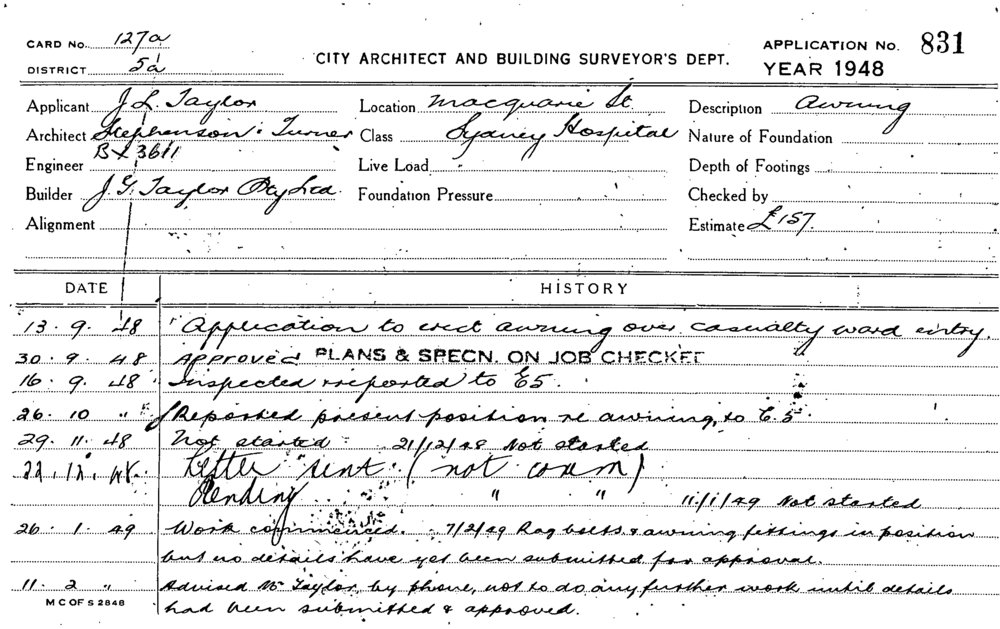 CARD No. 127a
DISTRICT 5a
CITY ARCHITECT AND BUILDING SURVEYOR'S DEPT.
APPLICATION No. 831
YEAR 1948
Applicant J. L. Taylor
Location Macquarie St
Description Awning
Architect Stephenson & Turner
Class Sydney Hospital
Nature of Foundation
BX 3611
Engineer
Live Load
Depth of Footings
Builder J. G. Taylor Pty Ltd.
Foundation Pressure
Checked by
Alignment
Estimate £157.
DATE HISTORY
13. 9. 48 Application to erect awning over casualty ward entry.
30. 9. 48 Approved PLANS & SPECN. ON JOB CHECKED
16. 9. 48 Inspected & reported to E5.
26. 10 " Reported present position re awning, to E.5.
29. 11. 48 Not started 21/12/48 Not started
22. 12. 48. Letter sent. (not comm)
Pending " " 11/1/49 Not started
26. 1. 49 Work commenced. 7/2/49 Rag bolts & awning fittings in position
but no details have yet been submitted for approval.
11. 2 " Advised Mr Taylor, by phone, not to do any further work until details
had been submitted & approved.
M C OF S 2848